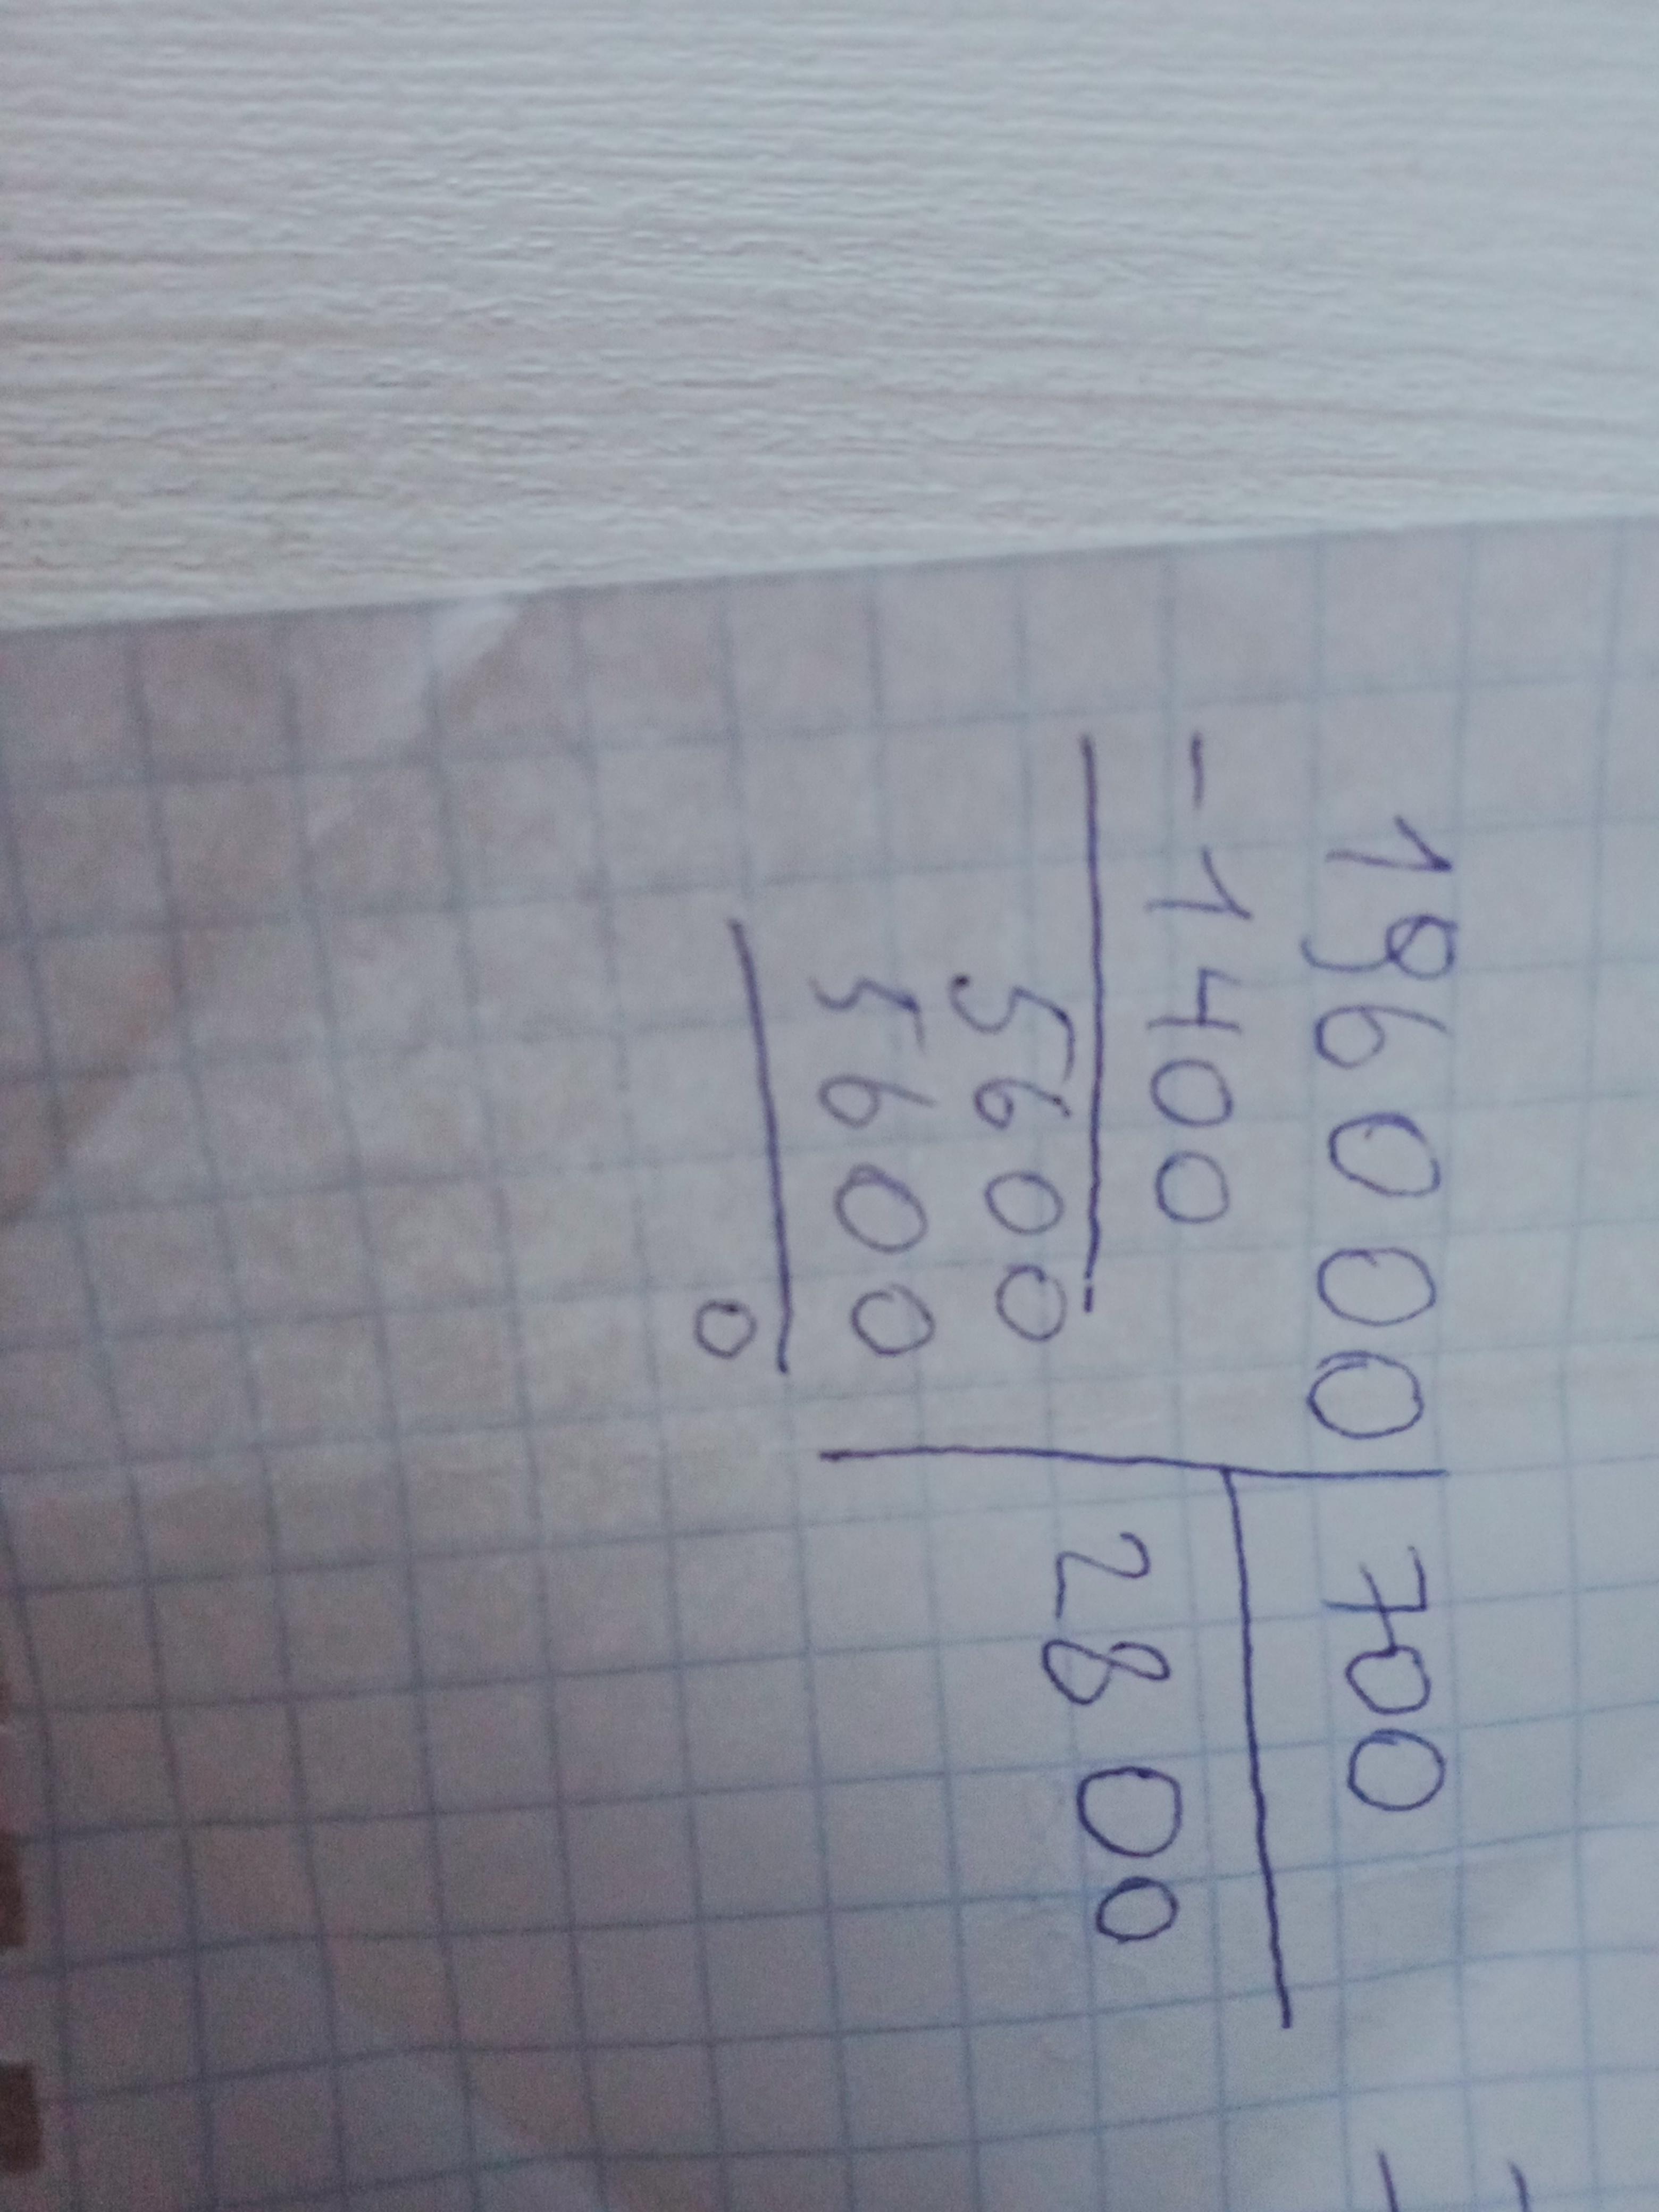 196000 700
-1400 2800
5600
5600
0